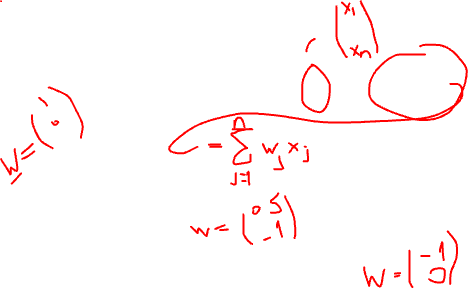 (x1
xn)
w = (1
0)
= ∑ j=1 n wj xj
w = (0.5
-1)
w = (-1
0)